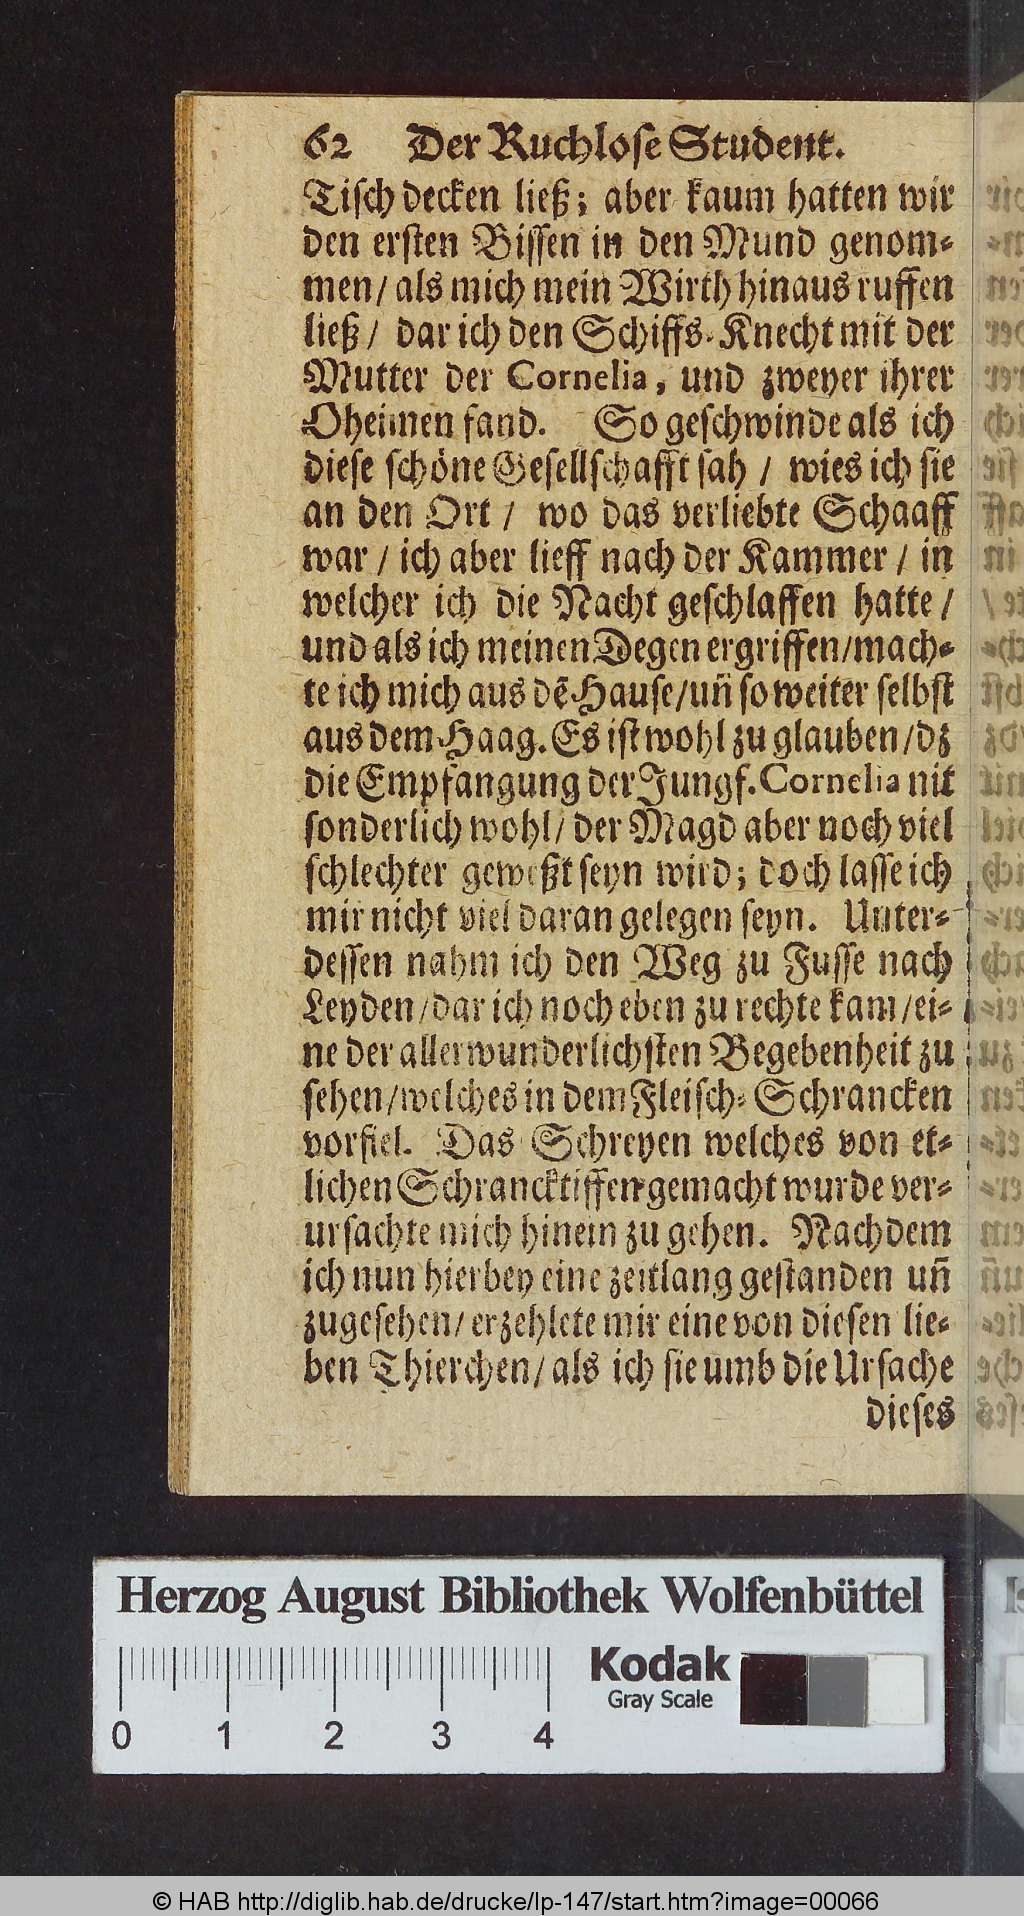 62 Der Ruchlose Student.
Tisch decken ließ; aber kaum hatten wir
den ersten Bissen in den Mund genom-
men/ als mich mein Wirth hinaus ruffen
ließ/ dar ich den Schiffs-Knecht mit der
Mutter der Cornelia, und zweyer ihrer
Oheimen fand. So geschwinde als ich
diese schöne Gesellschafft sah / wies ich sie
an den Ort / wo das verliebte Schaaff
war / ich aber lieff nach der Kammer / in
welcher ich die Nacht geschlaffen hatte /
und als ich meinen Degen ergriffen/mach-
te ich mich aus dē Hause/un̄ so weiter selbst
aus dem Haag. Es ist wohl zu glauben/dz
die Empfangung der Jungf. Cornelia nit
sonderlich wohl/ der Magd aber noch viel
schlechter geweßt seyn wird; doch lasse ich
mir nicht viel daran gelegen seyn. Unter-
dessen nahm ich den Weg zu Fusse nach
Leyden/dar ich noch eben zu rechte kam/ei-
ne der allerwunderlichsten Begebenheit zu
sehen/welches in dem Fleisch-Schrancken
vorfiel. Das Schreyen welches von et-
lichen Schrancktiffen gemacht wurde ver-
ursachte mich hinein zu gehen. Nachdem
ich nun hierbey eine zeitlang gestanden un̄
zugesehen/ erzehlete mir eine von diesen lie-
ben Thierchen/ als ich sie umb die Ursache
dieses
Herzog August Bibliothek Wolfenbüttel
Kodak
Gray Scale
0 1 2 3 4
© HAB http://diglib.hab.de/drucke/lp-147/start.htm?image=00066